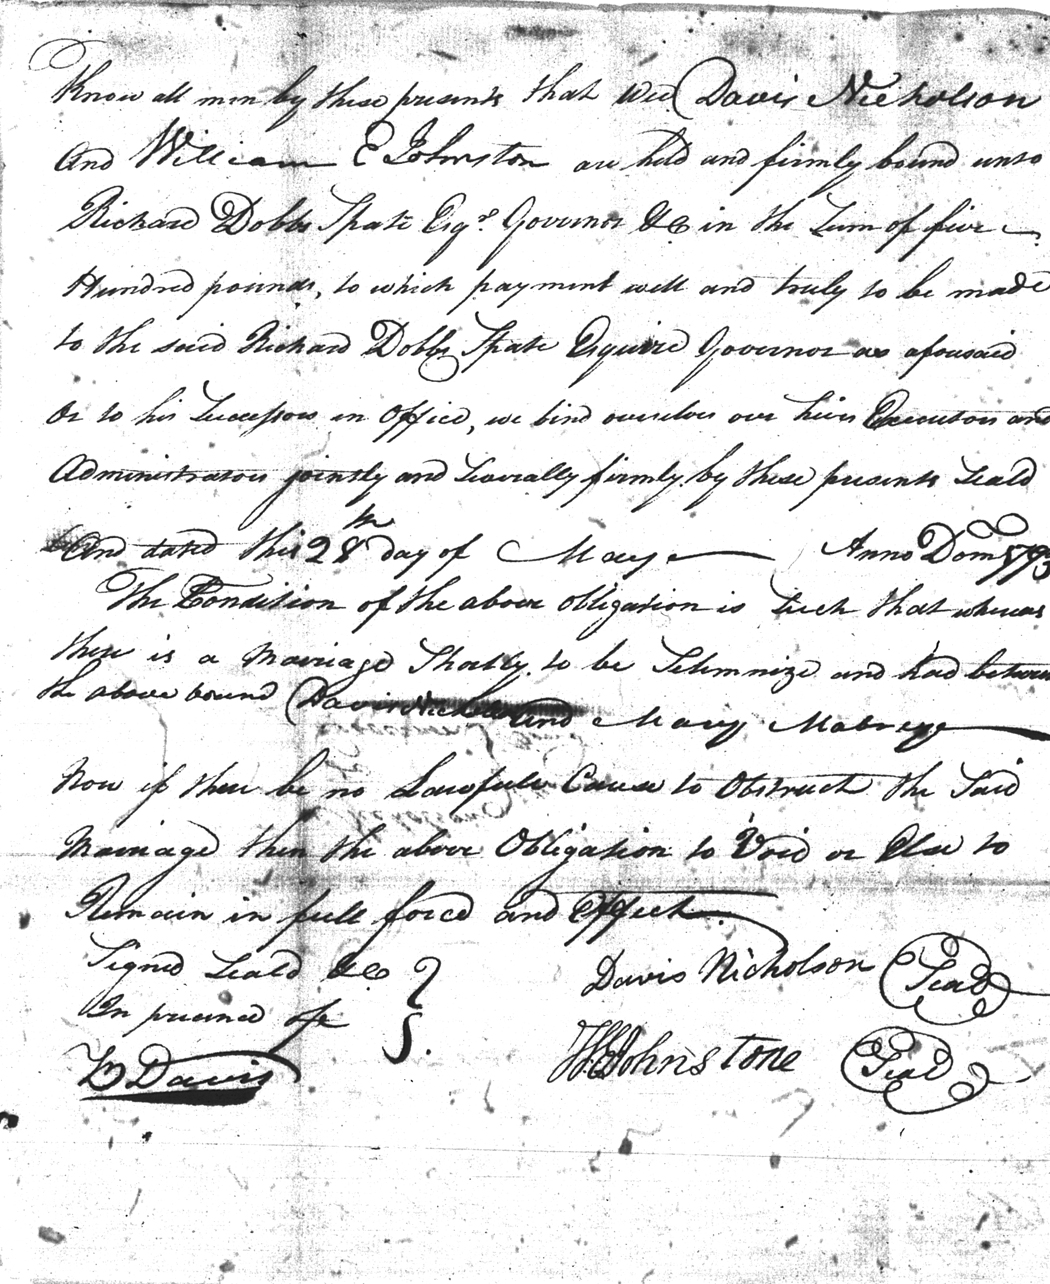 Know all men by these presents that wee Davis Nicholson
and William E Johnston are held and firmly bound unto
Richard Dobbs Spate Esqr. Governor &c in the Sum of five
Hundred pounds, to which payment well and truly to be made
to the said Richard Dobbs Spate Esquire Governor as afousaid
Or to his Successors in Office, we bind ourselves our heirs Executors and
Administrators jointly and Severally firmly by these presents Seald
And dated this 28th day of May Anno Dom 1793
The Condition of the above obligation is Such that whereas
there is a Marriage Shortly to be Selemnize and had between
the above bound Davis Nicholson and Mary Mabrey
Now if there be no Lawfull Cause to Obstruct the Said
Marriage then the above Obligation to Void or Else to
Remain in full force and Effect.
Signed Seald &c
In precence off
Davis Nicholson Seal
W E Johnstone Seal
Davis